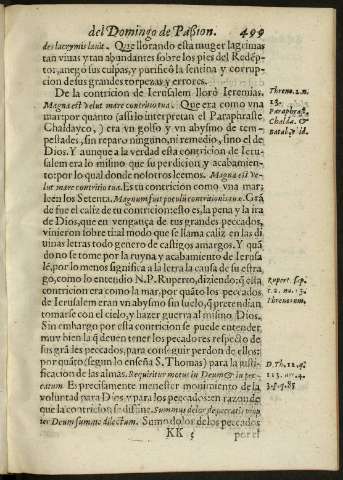 del Domingo de Paßion. 499
des lacrymis lauit. Que llorando esta muger lagrimas
tan viuas y tan abundantes sobre los pies del Redẽp-
tor, anegò sus culpas, y purificò la sentina y corrup-
cion de sus grandes torpezas y errores.
De la contricion de Ierusalem llorò Ieremias.
Magna est velut mare contritio tua. Que era como vna
mar; por quanto (assi lo interpretan el Paraphraste
Chaldayco,) era vn golfo y vn abysmo de tem-
pestades, sin reparo ninguno, ni remedio, sino el de
Dios. Y aunque a la verdad esta contricion de Ieru
salem era lo mismo que su perdicion y acabamien-
to: por lo qual donde nosotros leemos. Magna est ve-
lut mare contritio tua. Es tu contricion como vna mar;
leen los Setenta. Magnum fuit poculũ contritionis tuæ. Grã
de fue el caliz de tu contricion: esto es, la pena y la ira
de Dios, que en vengança de tus grandes peccados,
vinieron sobre ti: al modo que se llama caliz en las di
uinas letras todo genero de castigos amargos. Y quã
do no se tome por la ruyna y acabamiento de Ierusa
lẽ, por lo menos significa a la letra la causa de su estra-
go, como lo entendio N. P. Ruperto, diziendo; q̃ esta
contricion era como la mar, por quãto los peccados
de Ierusalem eran vn abysmo sin suelo, q̃ pretendian
tomarse con el cielo, y hazer guerra al mismo Dios.
Sin embargo por esta contricion se puede entender
muy bien la q̃ deuen tener los pecadores respecto de
sus grãdes peccados, para conseguir perdon de ellos:
por quãto, (segun lo enseña S. Thomas) para la justi-
ficacion de las almas. Requiritur motus in Deum & in pec-
catum. Es precisamente menester mouimiento de la
voluntad para Dios y para los peccados: en razon de
que la contricion se difine. Summus dolor de peccatis
Deum summe dilectum. Sumo dolor de los peccados
KK 5 por el
Threno. 2. n.
13.
Paraphrast.
Chalda. &
Batabl. ibi.
Rupert. sup.
c. 2. nu. 13.
Threnorum.
D. Th. 12. q.
113. art. 4.